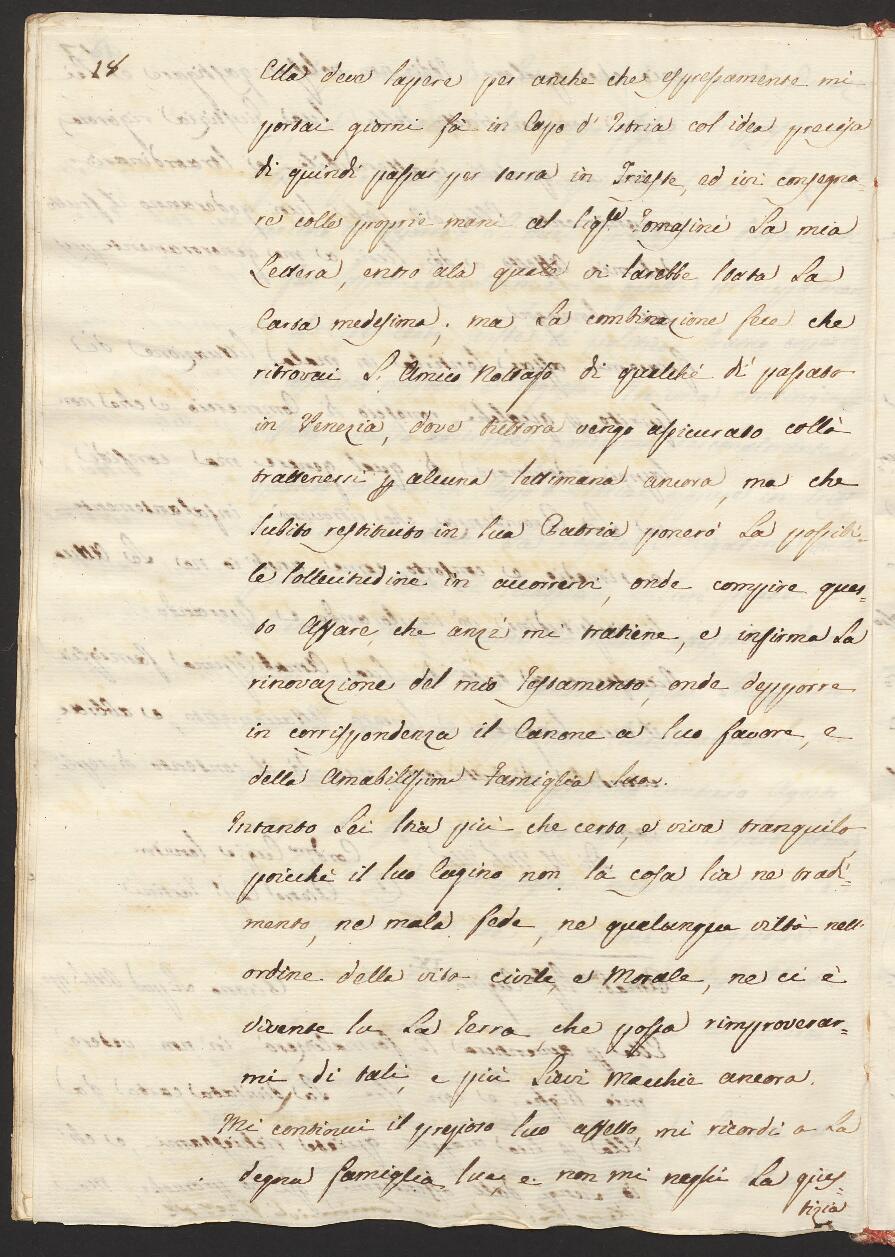 18
Ella deve sapere per anche che espressamente mi
portai giorni fà in Capo d'Istria col idea precisa
di quindi passar per terra in Trieste, ed ivi consegna-
re colle proprie mani al Sig.re Tomasini La mia
Lettera, entro ala quale vi sarebbe stata La
Carta medesima; ma La combinazione fece che
ritrovai L'Amico Nottajo di qualche dì passato
in Venezia, dove tuttora vengo assicurato collà
trattenersi p alcuna settimana ancora, ma che
subito restituito in sua Patria ponerò La possibi-
le sollecitudine in accorrervi, onde compire ques-
to affare, che anzi mi tratiene, e infirma La
rinovazione del mio Testamento, onde depporre
in corrispondenza il Canone a suo favore, e
della Amabilissima Famiglia sua.
Intanto Lei stia più che certo, e viva tranquilo
poicchè il suo Cugino non sà cosa sia ne tradi-
mento, ne mala fede, ne qualunqua viltà nell'
ordine della vita civile, e Morale, ne ci è
vivente su La Terra che possa rimproverar-
mi di tali, e più Lievi Macchie ancora.
Mi continui il prezioso suo affetto, mi ricordi a La
degna famiglia sua e non mi neghi La gius-
tizia